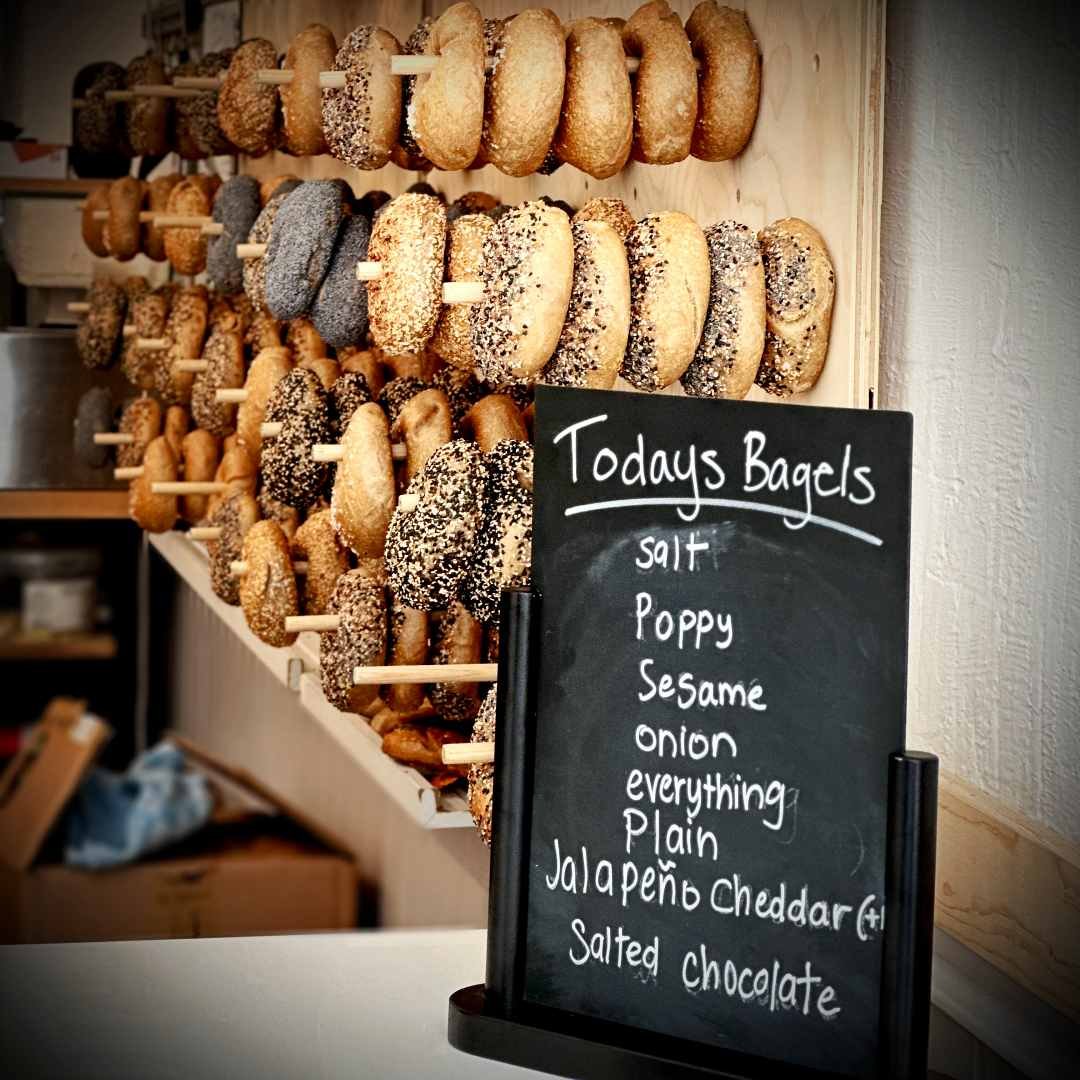 Todays Bagels
salt
Poppy
Sesame
onion
everything
Plain
Jalapeño Cheddar (+1
Salted chocolate